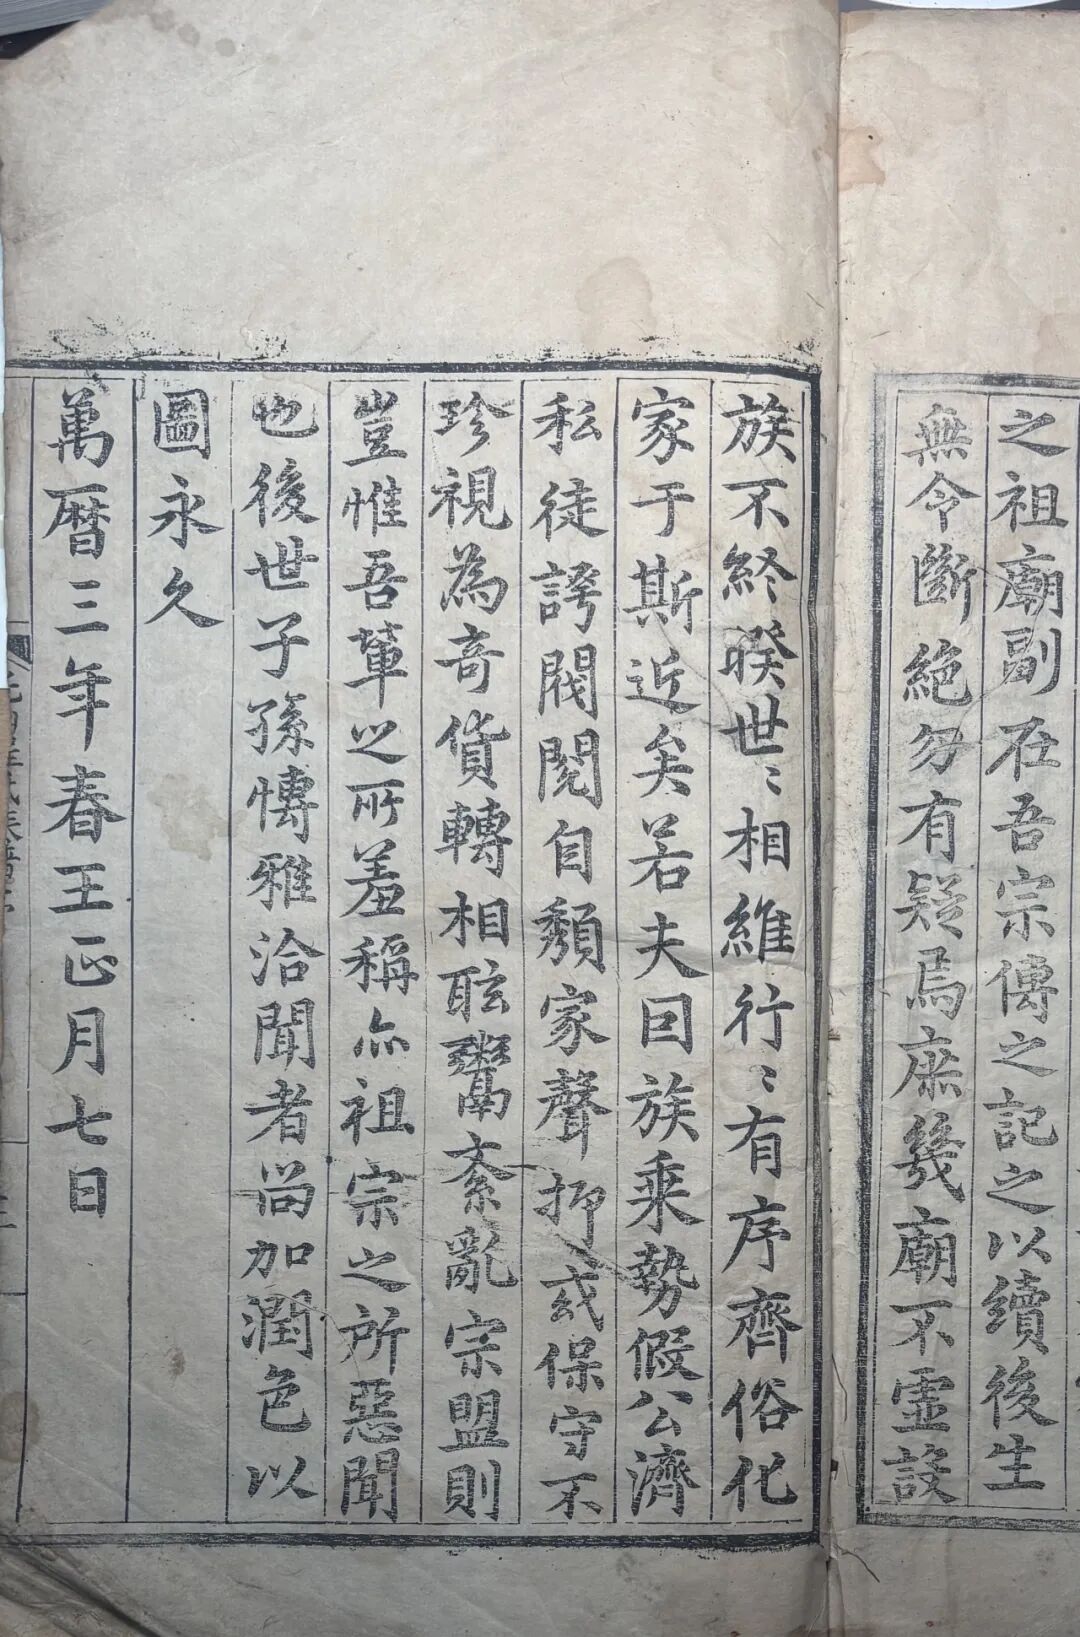 之祖廟副在吾宗傳之記之以續後生
無令斷絕勿有疑焉庶幾廟不虛設
族不終暌世〻相維行〻有序齊俗化
家于斯近矣若夫因族乘勢假公濟
私徒誇閥閱自頹家聲抑或保守不
珍視為奇貨轉相眩鬻紊亂宗盟則
豈惟吾輩之所羞稱亦祖宗之所惡聞
也後世子孫慱雅洽聞者尚加潤色以
圖永久
萬曆三年春王正月七日